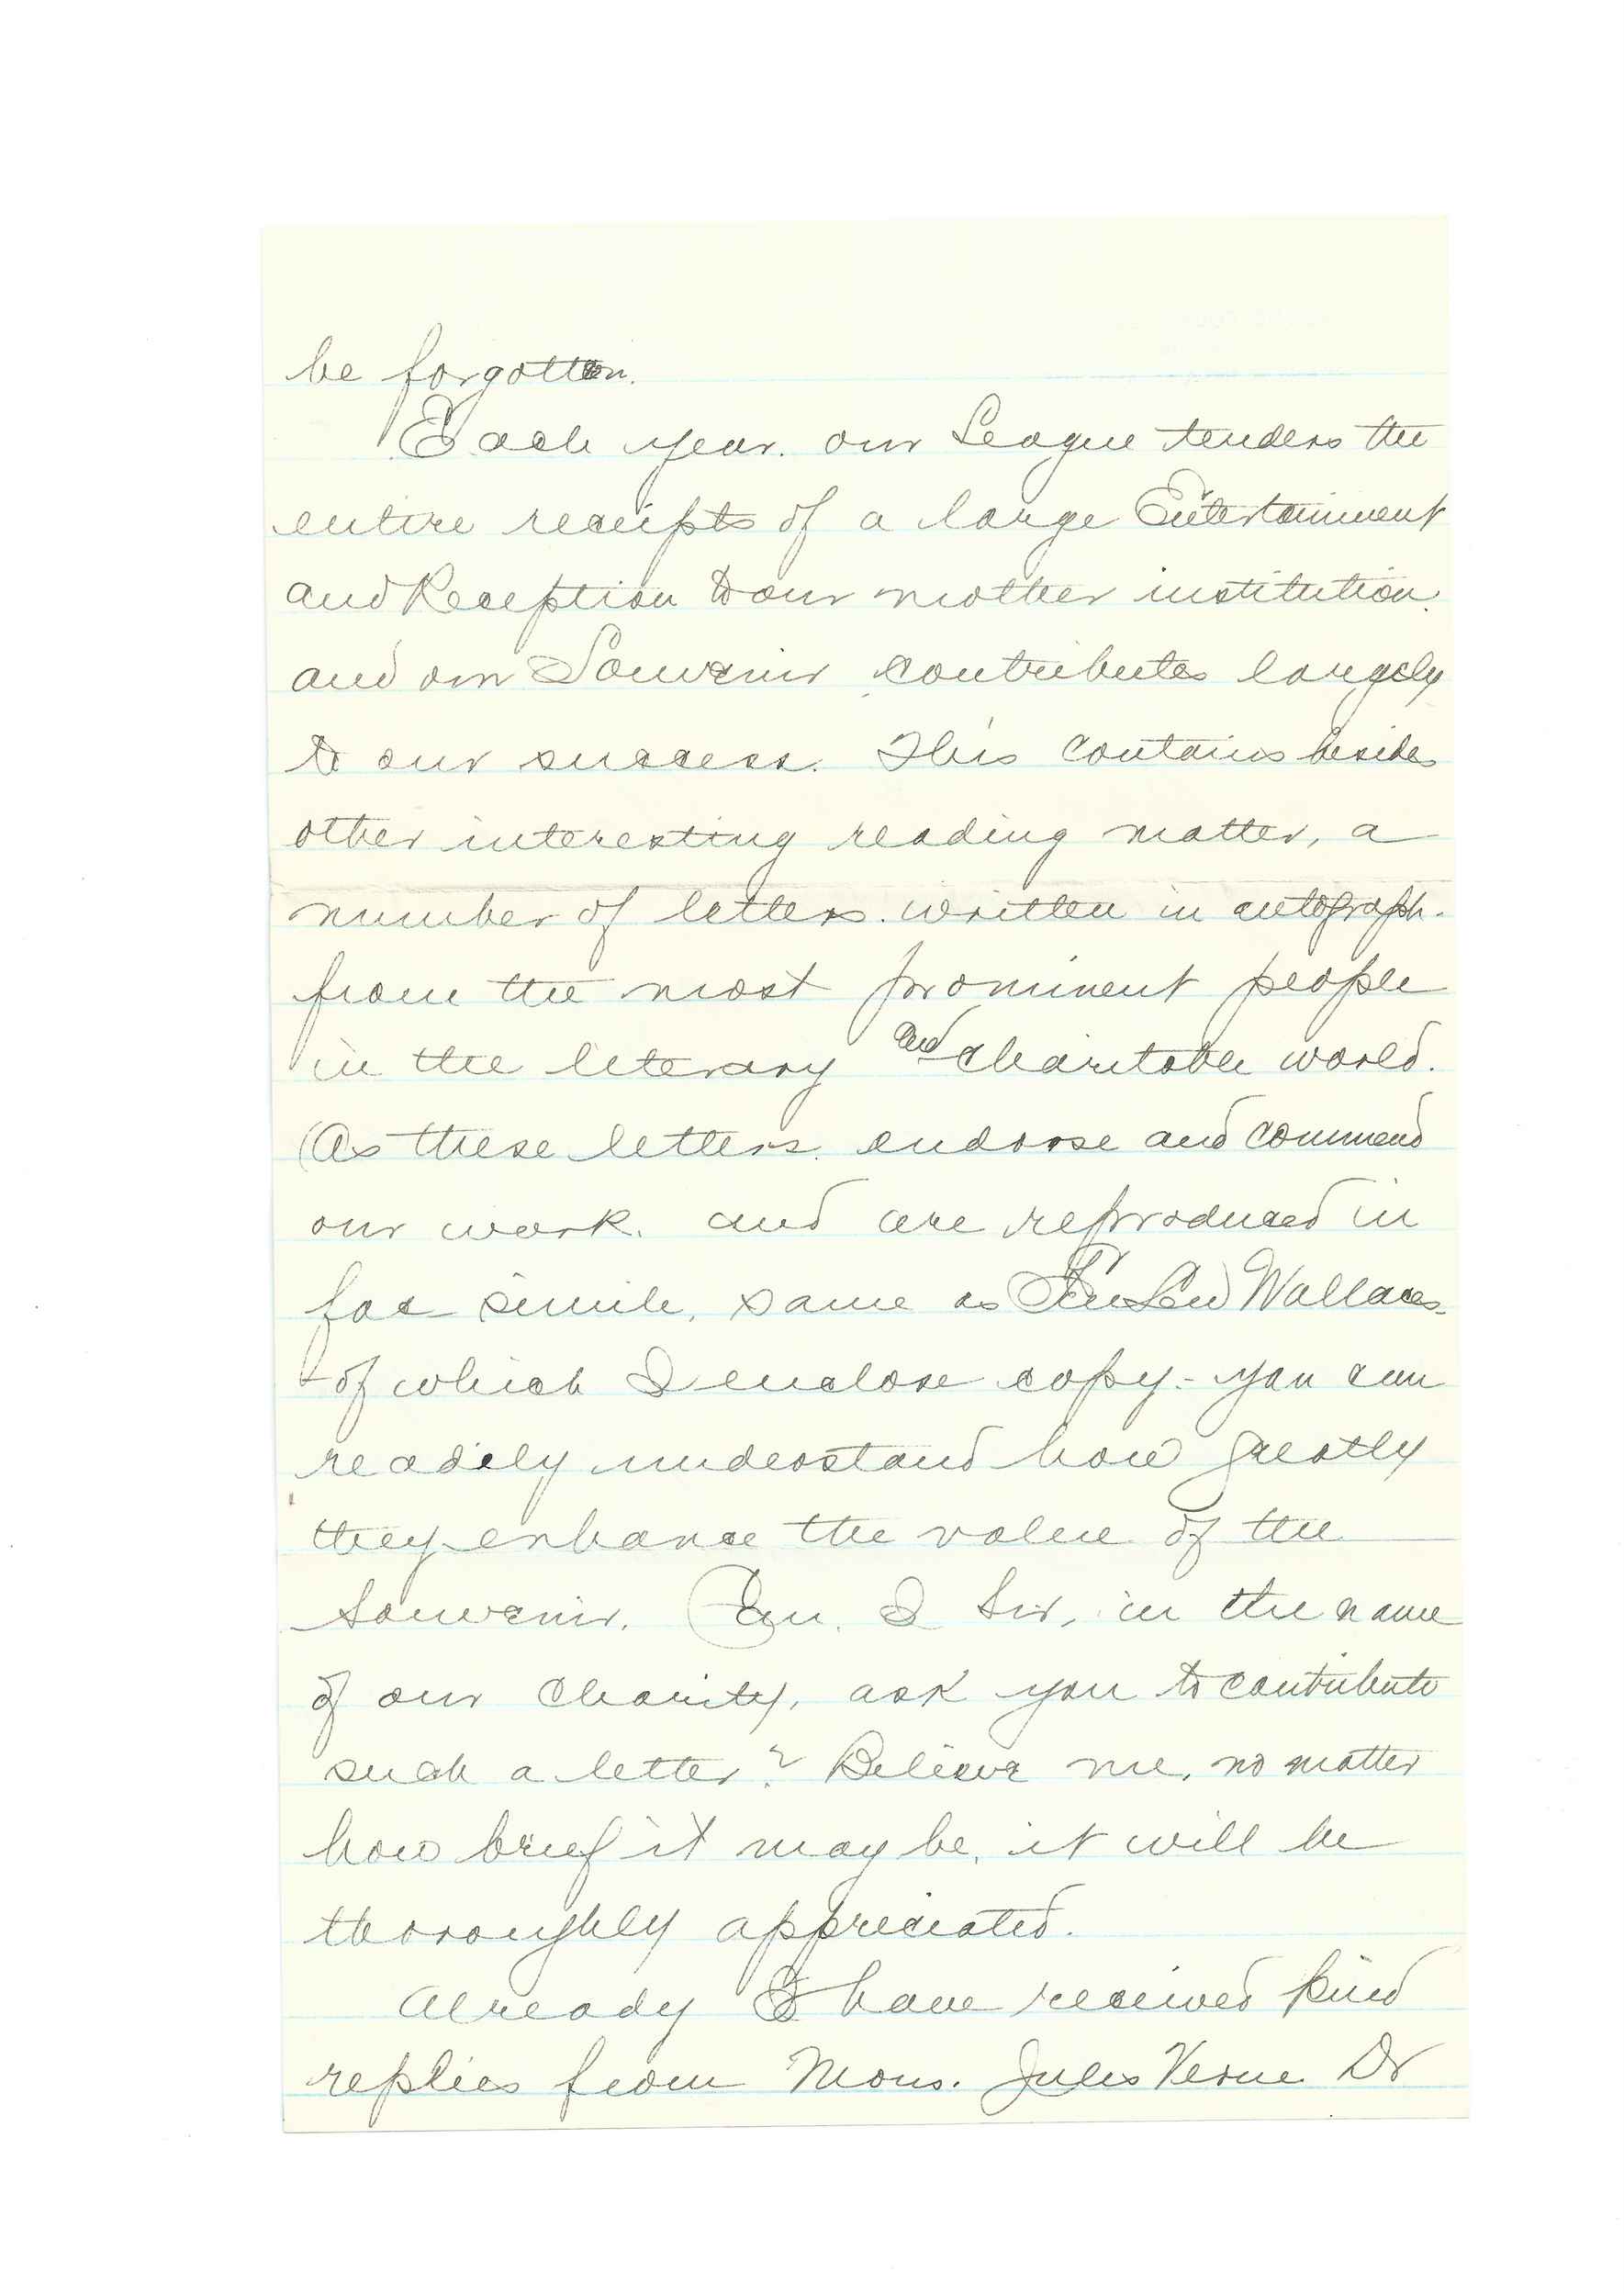 be forgotten.
Each year. our League tenders the
entire receipts of a large Entertainment
and Reception to our mother institution.
and our Souvenir contributes largely
to our success. This contains besides
other interesting reading matter, a
number of letters. written in autograph.
from the most prominent people
in the literary and charitable world.
As these letters. endorse and commend
our work. and are reproduced in
fac simile, same as Gen Lew Wallaces-
- of which I enclose copy.- you can
readily understand how greatly
they enhance the value of the
Souvenir. Can. I Sir, in the name
of our charity, ask you to contribute
such a letter? Believe me, no matter
how brief it may be, it will be
thoroughly appreciated.
Already I have received kind
replies from Mons. Jules Verne Dr